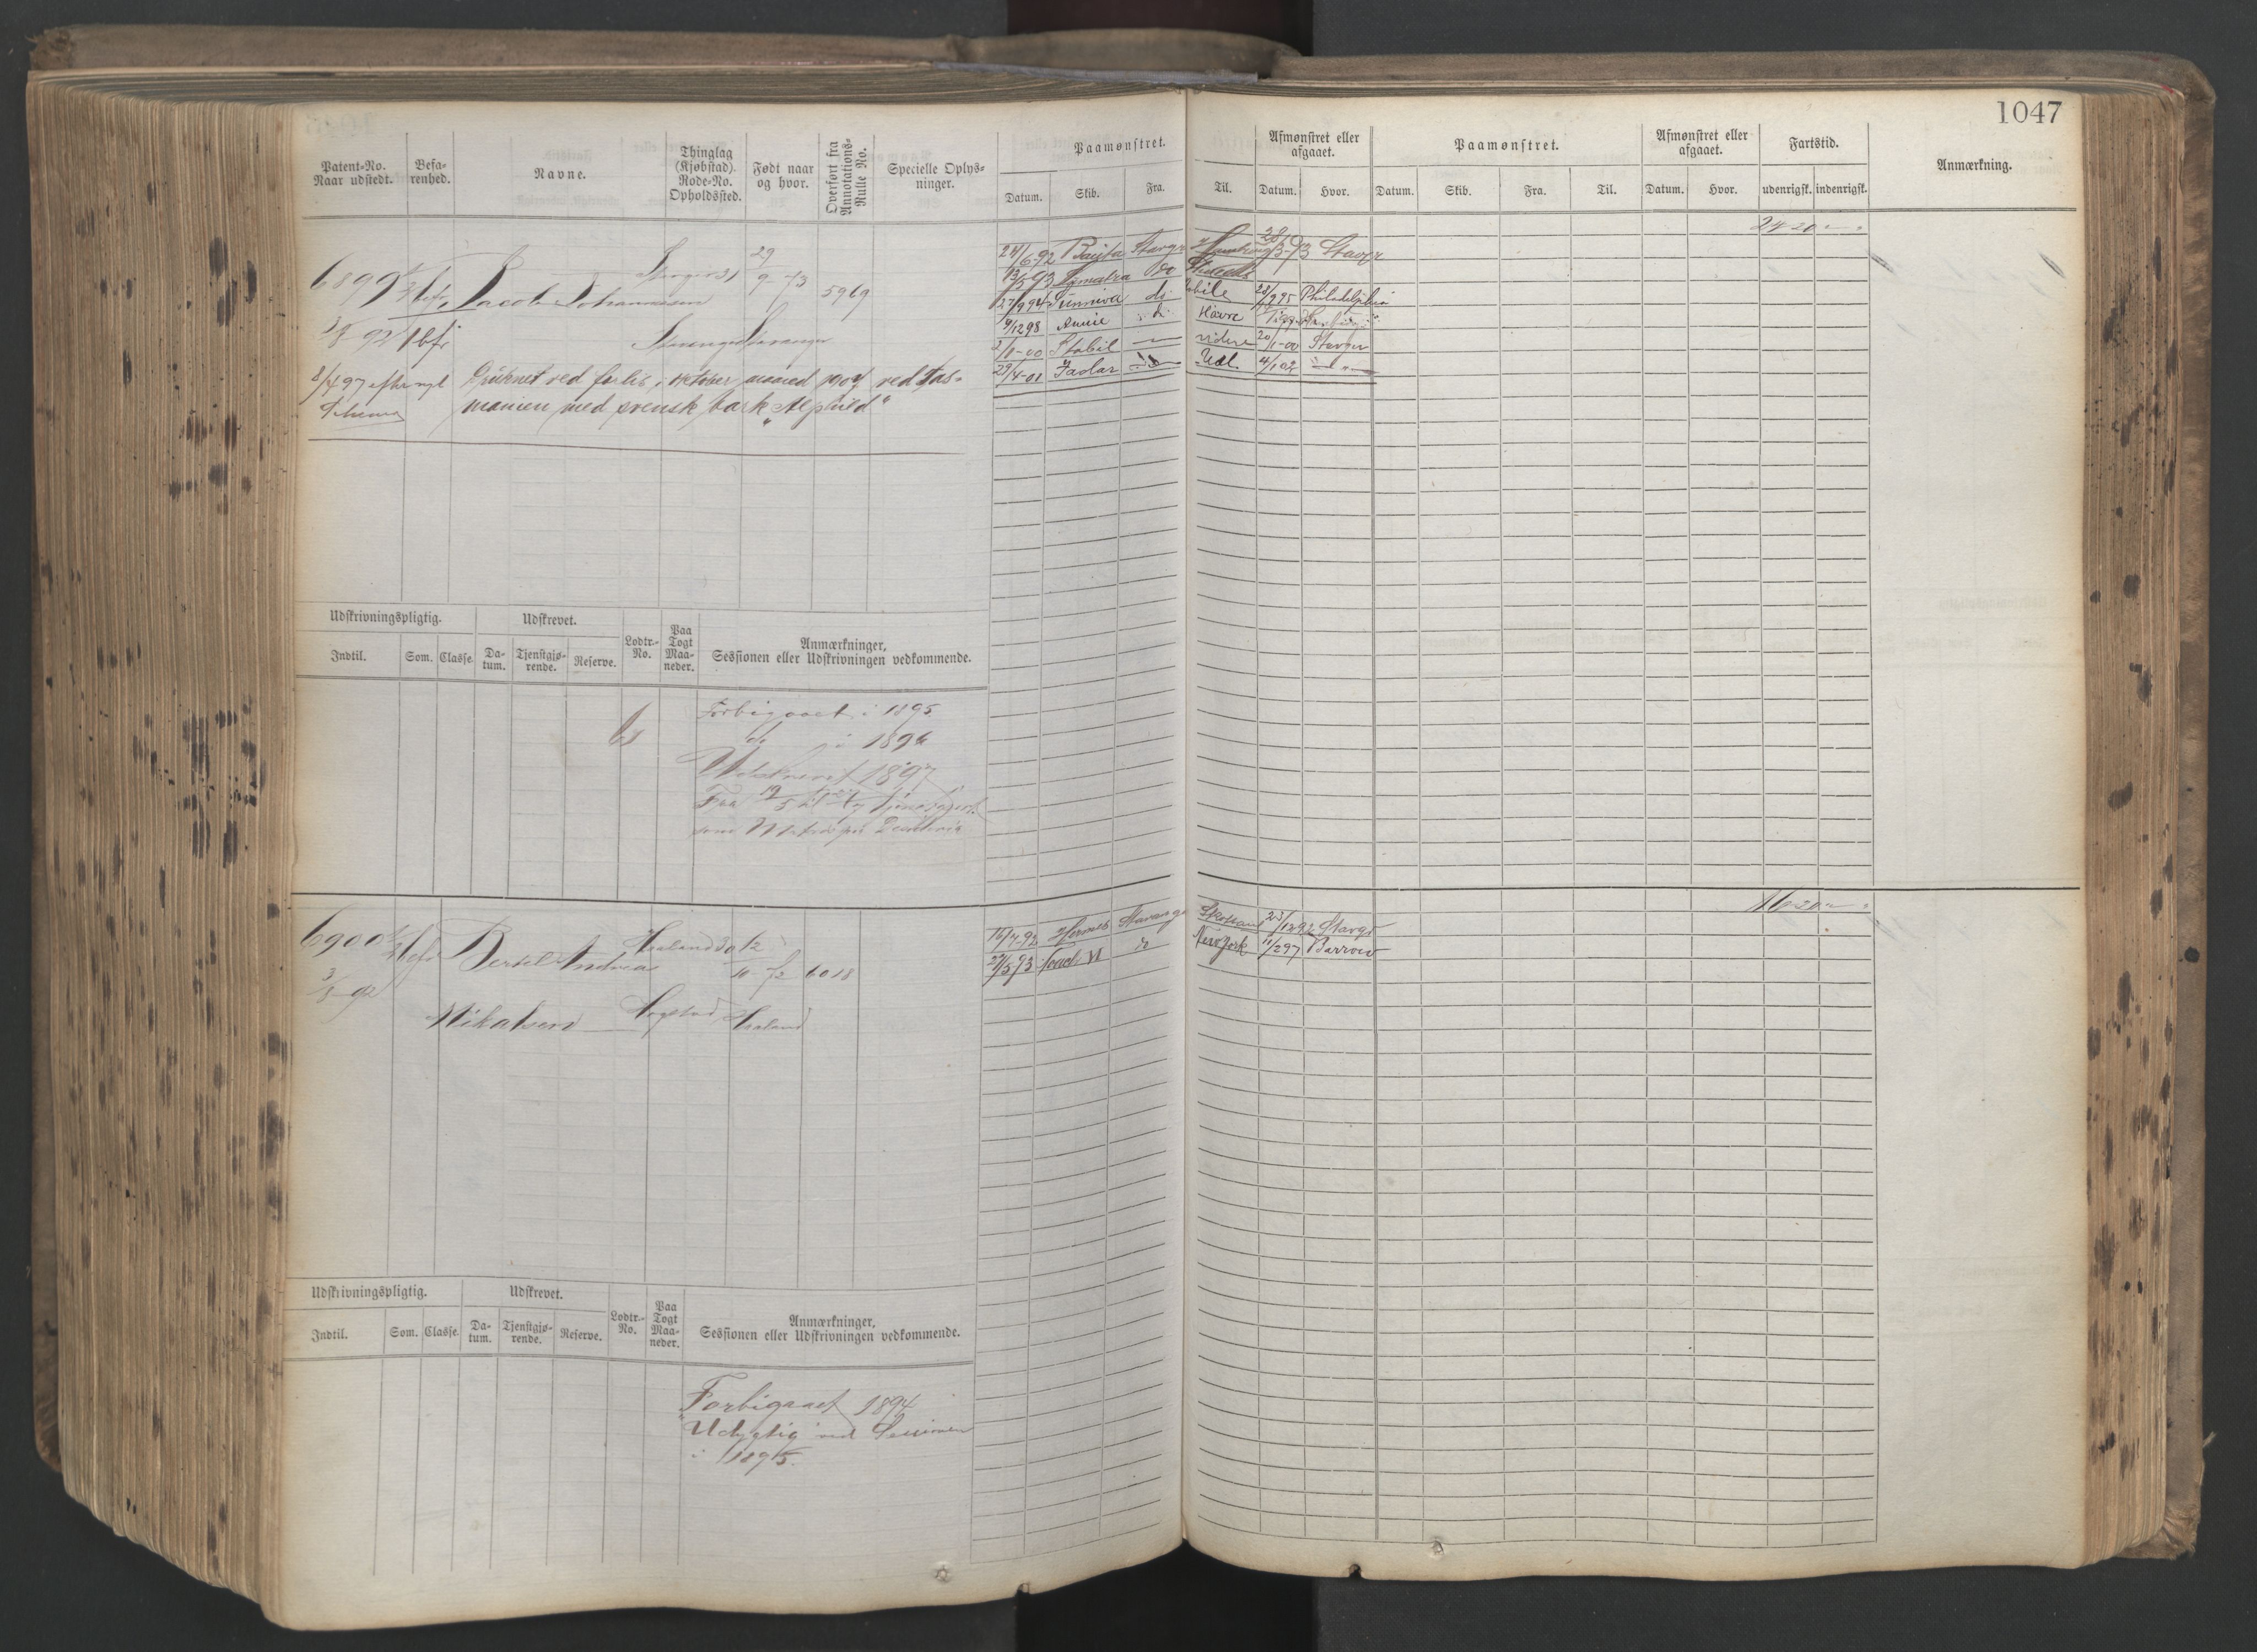 1047
Patent-No. Naar udstedt.
Befarenhed.
Navne.
Thinglag (Kjøbstad). Rode-No. Opholdssted.
Født naar og hvor.
Overført fra Annotations-Rulle No.
Specielle Oplysninger.
Paamønstret.
Datum. Skib. Fra. Til.
Afmønstret eller afgaaet.
Datum. Hvor.
Paamønstret.
Datum. Skib. Fra. Til.
Afmønstret eller afgaaet.
Datum. Hvor.
Fartstid.
udenrigsk. indenrigsk.
Anmærkning.
6899 Jacob Johannessen Stavgr 31 29/9 73 5969
3/8 92 Stavanger Stavanger
8/4 97 efter nyt Schema
Druknet ved forlis i oktober maaned 1907 ved Tas-
manien med svensk bark "Alphild"
24/6 92 Stavgr Hamburg Stavgr
13/5 93 Sumatra do
27/9 94 Sunniva do 28/9 95 Philadelphia
9/12 98 Annie do Havre
2/1-00 Stabil videre 20/1-00 Stavgr
29/4-01 Jadar do Udl. 4/1 02
Udskrivningspligtig.
Indtil. Som. Classe.
Udskrevet.
Datum. Tjenstgjørende. Reserve.
Lodtr.-No.
Paa Togt Maaneder.
Anmærkninger, Sessionen eller Udskrivningen vedkommende.
Forbigaaet i 1895
do i 1896
Udskrevet 1897
6900 Bertel Andreas Haaland 30 12/10-72 6018
3/8-92
Mikalsen Haaland
16/7 92 Hermes Stavanger 23/12 92 Stavgr
27/5 93 do New York 11/2 97 Barrow
16 20
Udskrivningspligtig.
Indtil. Som. Classe.
Udskrevet.
Datum. Tjenstgjørende. Reserve.
Lodtr.-No.
Paa Togt Maaneder.
Anmærkninger, Sessionen eller Udskrivningen vedkommende.
Forbigaaet 1894
Udygtig ved Sessionen
i 1895.